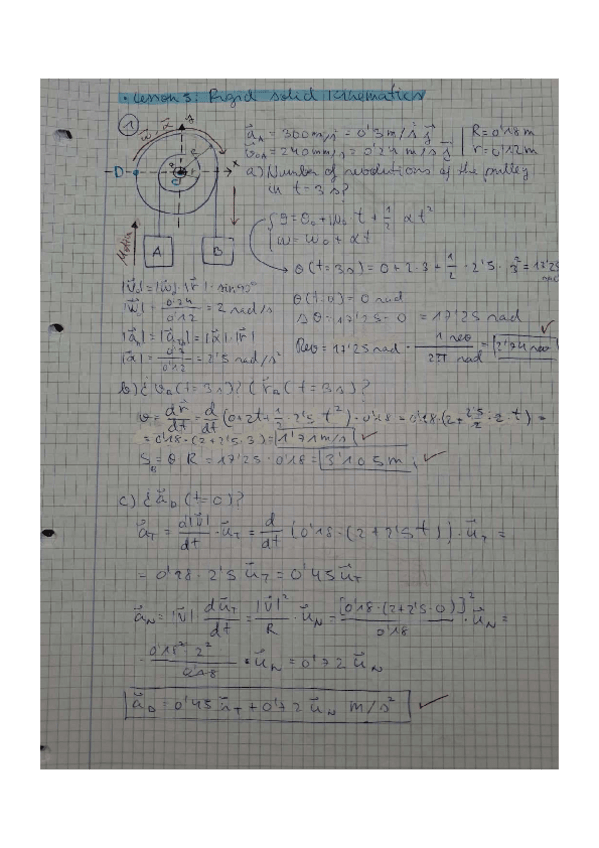 · Lesson 3: Rigid solid Kinematics
① ω⃗, α⃗ y
D x
R r
Motion
A B
a⃗A = 300 mm/s² = 0'3 m/s² j⃗ | R = 0'18 m
v⃗0A = 240 mm/s = 0'24 m/s j⃗ | r = 0'12 m
a) Number of revolutions of the pulley
in t = 3 s?
{ θ = θ₀ + ω₀ · t + 1/2 αt²
{ ω = ω₀ + αt
θ(t=3s) = 0 + 2·3 + 1/2 · 2'5 · 3² = 17'25 rad
|v⃗₀| = |ω⃗₀| · |r⃗| · sin 90°
|ω⃗₀| = 0'24/0'12 = 2 rad/s
θ(t=0) = 0 rad
Δθ = 17'25 - 0 = 17'25 rad
|a⃗A| = |a⃗T| = |α⃗| · |r⃗|
|α⃗| = 0'3/0'12 = 2'5 rad/s²
Rev = 17'25 rad · 1 rev/2π rad = 2'74 rev ✓
b) ¿ v⃗B (t=3s)? ¿ r⃗B (t=3s)?
v = dr⃗/dt = d/dt (0+2t+1/2 · 2'5 t²) · 0'18 = 0'18 · (2 + 2'5/2 · 2 · t) =
= 0'18 · (2+2'5·3) = 1'71 m/s ✓
SB = θ R = 17'25 · 0'18 = 3'105 m ; ✓
c) ¿ a⃗D (t=0)?
a⃗T = d|v⃗|/dt · u⃗T = d/dt (0'18 · (2 + 2'5 t)) · u⃗T =
= 0'18 · 2'5 u⃗T = 0'45 u⃗T
a⃗N = |v⃗| du⃗T/dt = |v⃗|²/R · u⃗N = [0'18·(2+2'5·0)]²/0'18 · u⃗N =
= 0'18² · 2²/0'18 · u⃗N = 0'72 u⃗N
a⃗D = 0'45 u⃗T + 0'72 u⃗N m/s² ✓